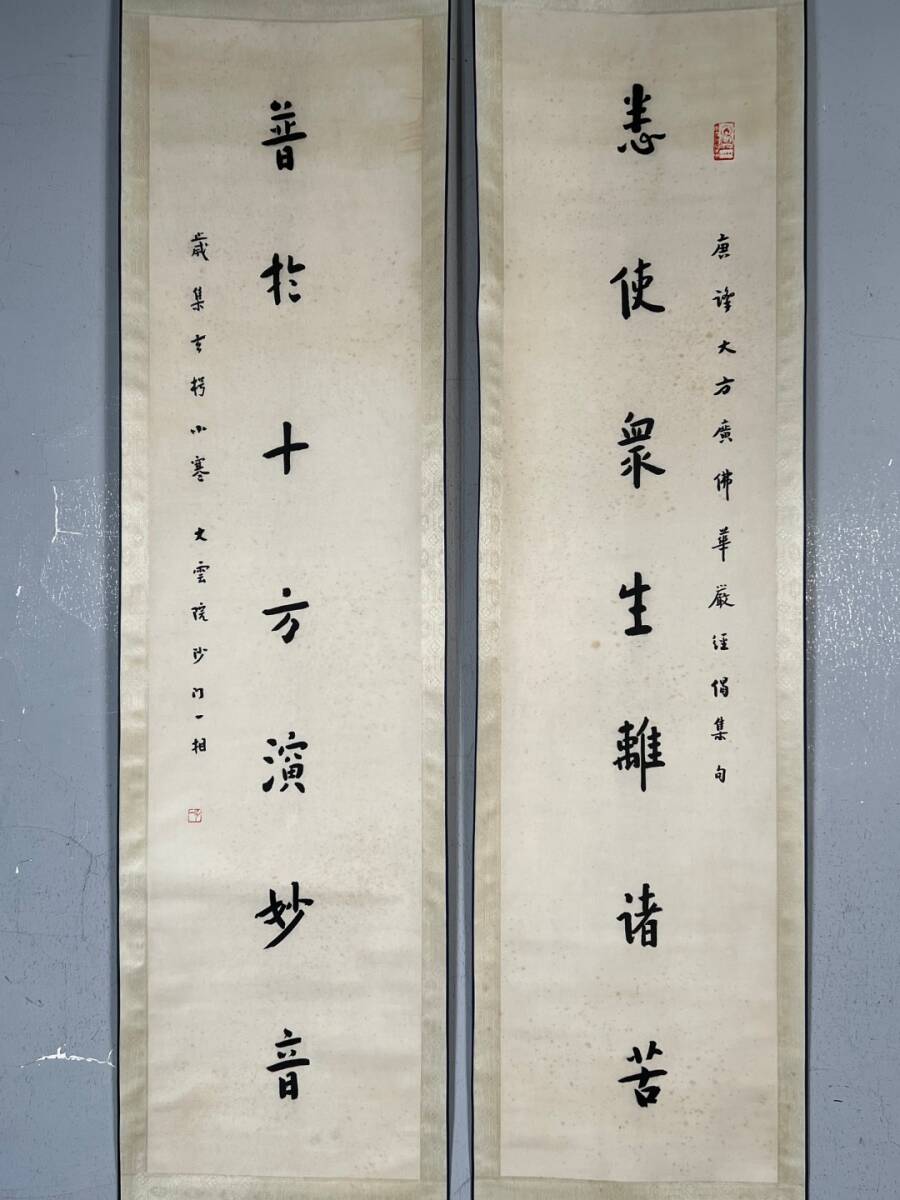 唐譯大方廣佛華嚴經偈集句
悉使眾生離諸苦
普於十方演妙音
歲集玄枵小寒 大雲院沙門一相